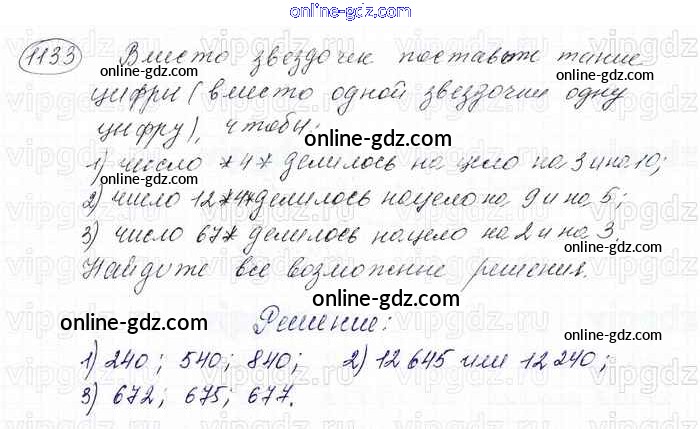 online-gdz.com
1133 Вместо звездочек поставьте такие
online-gdz.com online-gdz.com
цифры (вместо одной звездочки одну
цифру), чтобы:
online-gdz.com
1) число *4* делилось на цело на 3 и на 10;
online-gdz.com
2) число 12*4* делилось нацело на 9 и на 5;
online-gdz.com
3) число 67* делилось нацело на 2 и на 3.
online-gdz.com online-gdz.com
Найдите все возможные решения.
online-gdz.com
Решение:
online-gdz.com
1) 240; 540; 840; 2) 12 645 или 12 240;
online-gdz.com online-gdz.com
3) 672; 675; 677.
online-gdz.com